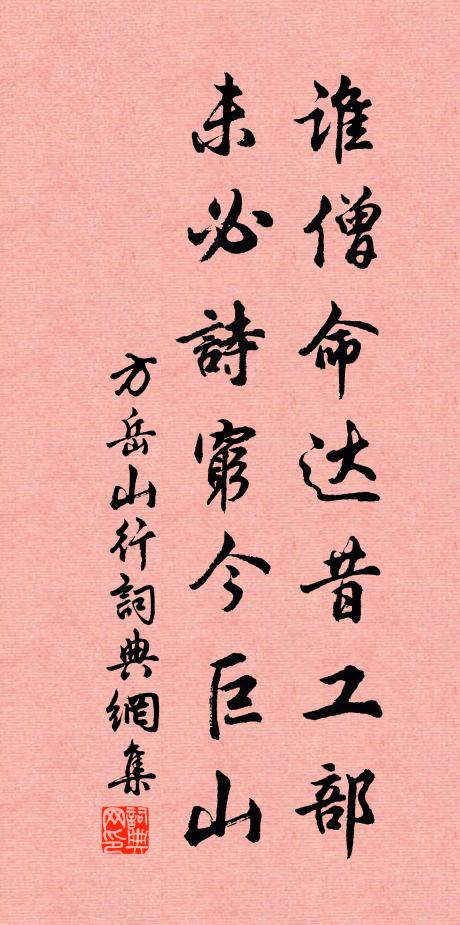 谁僧命达昔工部
未必詩窮今巨山
方岳山行詞典網集
詞典网印